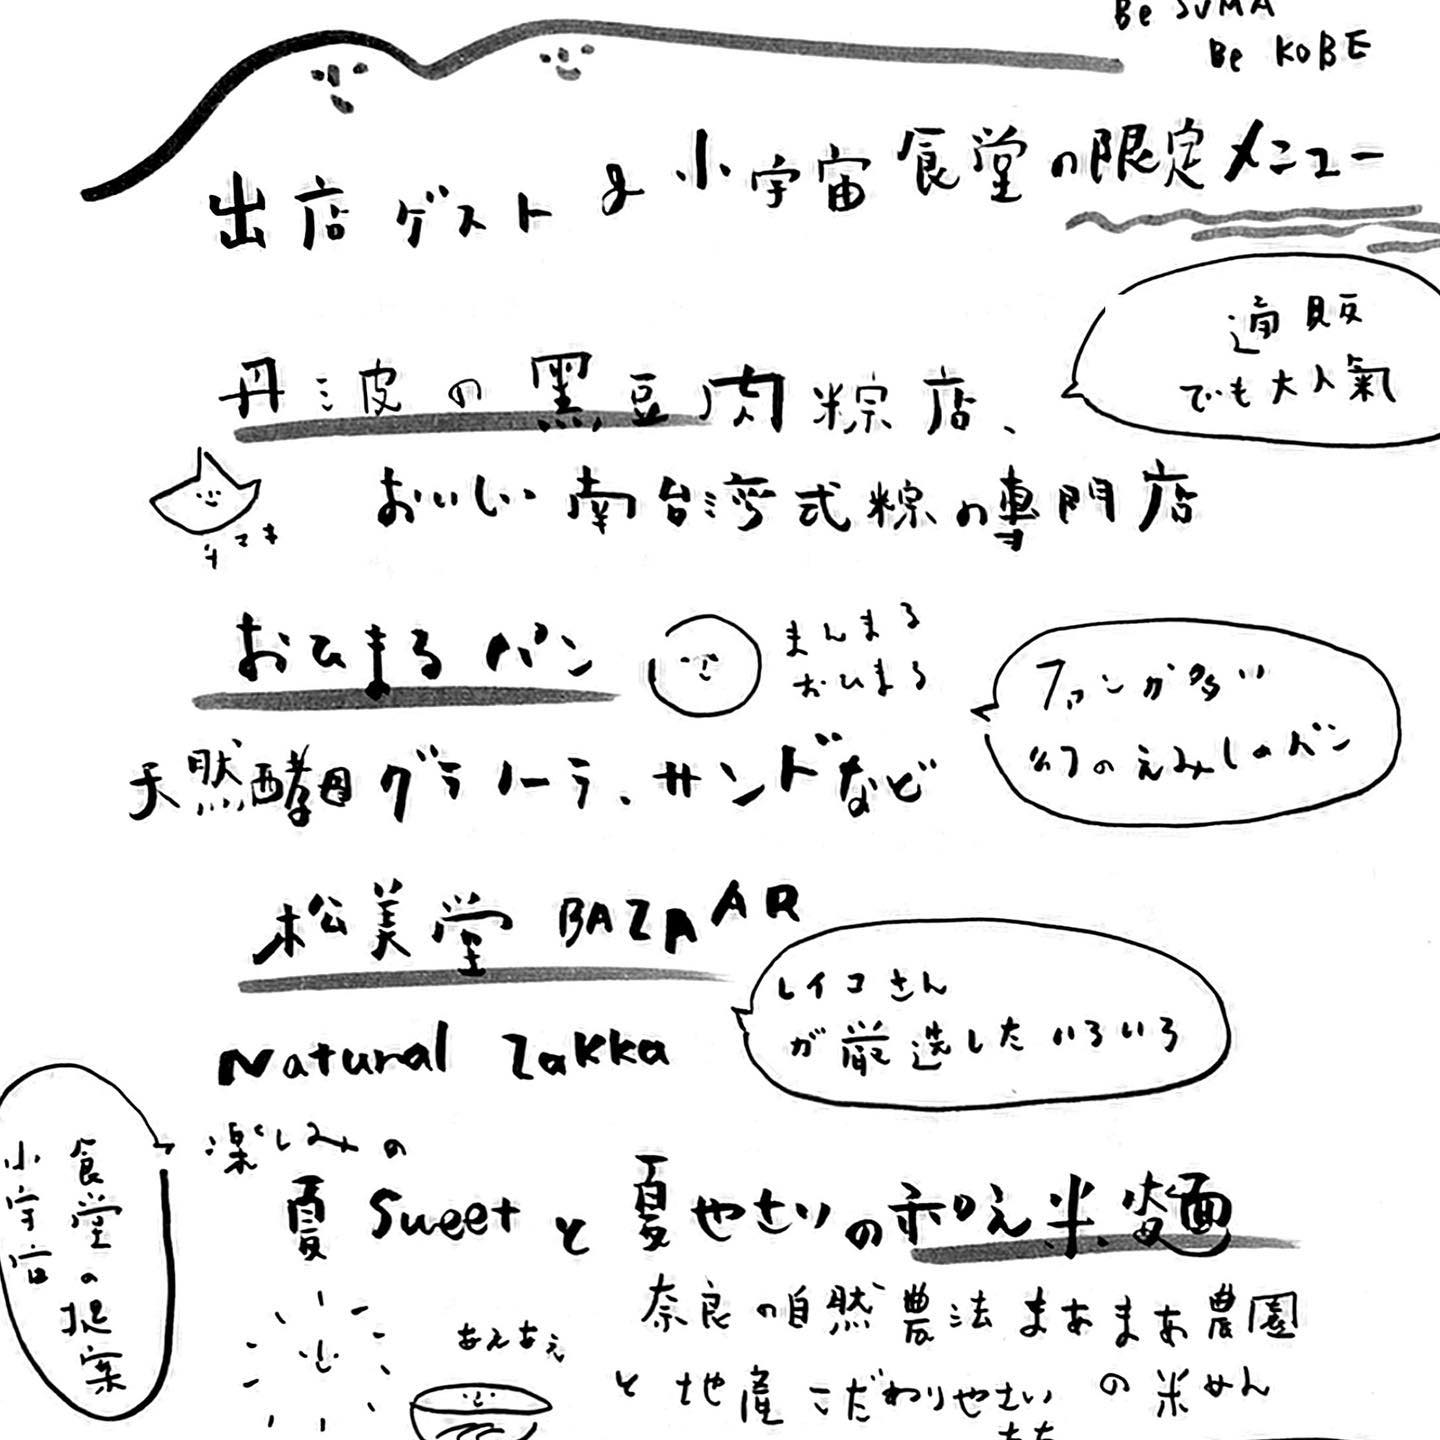 Be SUMA
Be KOBE
出店ゲスト & 小宇宙食堂の限定メニュー
通販
でも大人氣
丹波の黒豆肉粽店、
おいしい南台湾式粽の専門店
チマキ
おひまるパン
まんまる
おひまる
ファンが多い
幻のえみしのパン
天然酵母グラノーラ、サンドなど
松美堂 BAZAAR
レイコさん
が厳選したいろいろ
Natural Zakka
小宇宙
食堂の提案
楽しみの
夏 Sweet と 夏やさいの和え米麺
奈良の自然農法まあまあ農園
と地産こだわりやさい の米めん
あえあえ